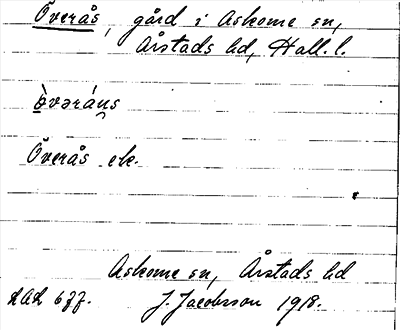 Överås, gård i Askome sn,
Årstads hd, Hall. l.
Överås ek.
Askome sn, Årstads hd
J. Jacobsson 1918.